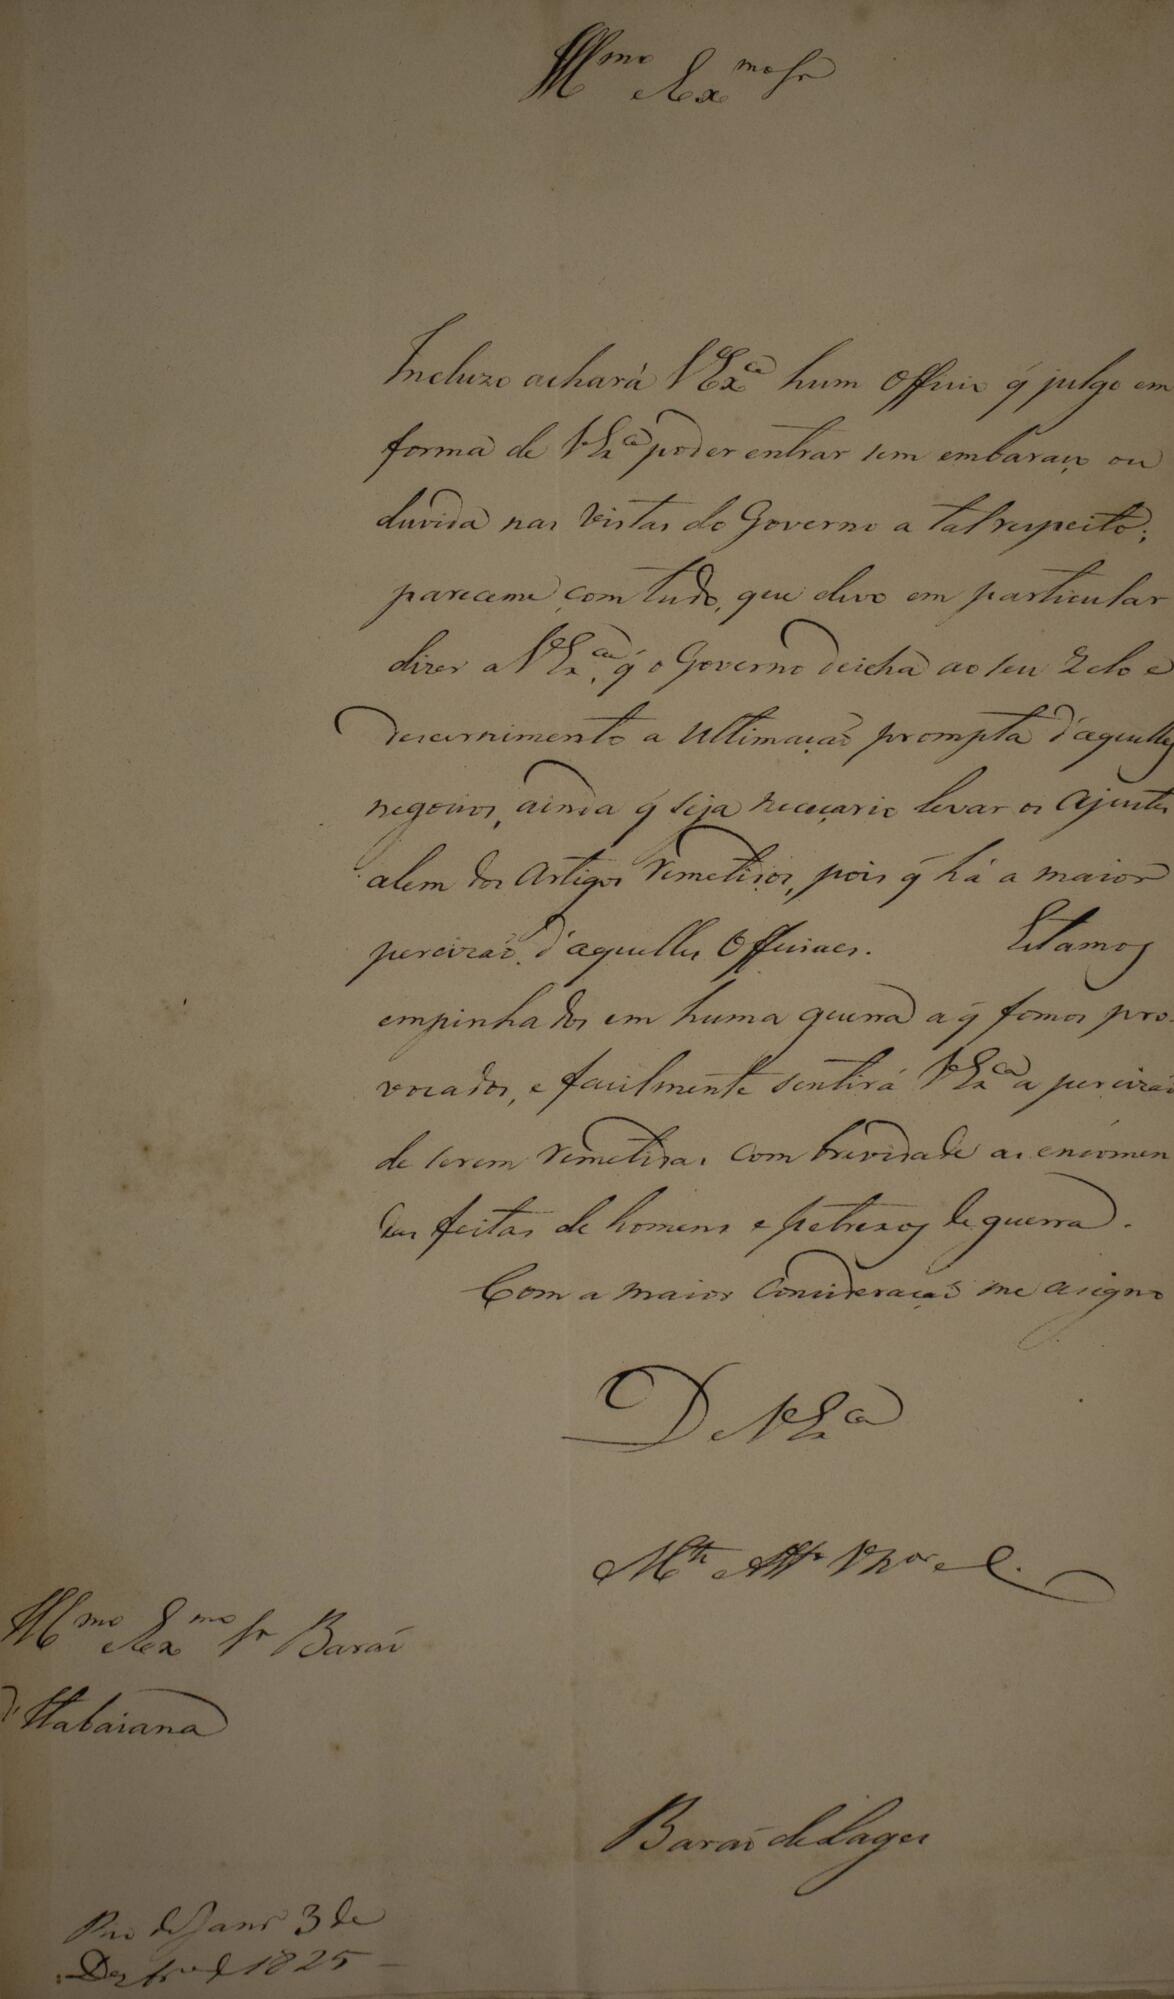 Illmo e Exmo Sr
Incluzo achará V Exca hum Officio q̃ julgo em
forma de V Exca poder entrar sem embaraço ou
duvida nas vistas do Governo a tal respeito;
pareceme com tudo, que devo em particular
dizer a V Exca, q̃ o Governo deicha ao seu zelo e
descernimento a ultimação prompta d'aquelles
negocios, ainda q̃ seja neceçario levar os Ajustes
alem dos Artigos remetidos, pois q̃ há a maior
percizão d'aquelles Officiaes. Estamos
empinhados em huma guerra a q̃ fomos pro-
vocados, e facilmente sentirá V Exca a percizão
de serem remetidas com brevidade as encomen
das feitas de homens e petrexos de guerra.
Com a maior consideração me asigno
De V Exca
Mto Atto Vor e C.
Illmo e Exmo Sr Barão
d'Itabaiana
Barão de Lages
Rio de Janro 3 de
Dezbro de 1825